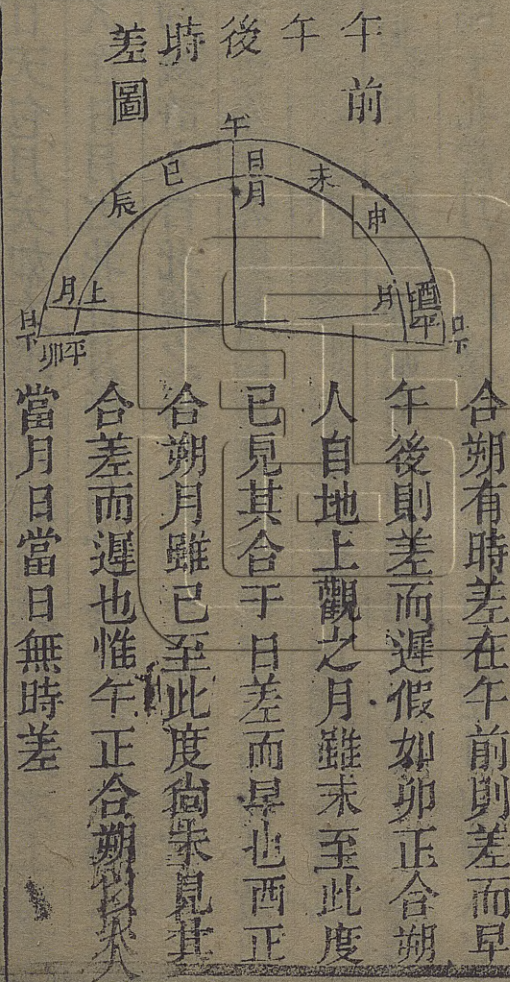 午前
午
後
時
差圖
午
日月
巳
未
辰
申
月上
月上
酉平
日下
卯平
日下
合朔有時差在午前則差而早
午後則差而遲假如卯正合朔
人自地上觀之月雖未至此度
已見其合于日差而早也酉正
合朔月雖已至此度尙未見其
合差而遲也惟午正合朔以人
當月日當日無時差